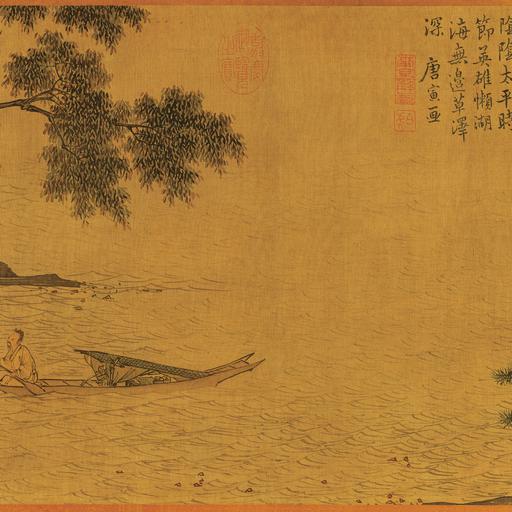 陰陰太平時
節英雄懶湖
海無邊草澤
深 唐寅画